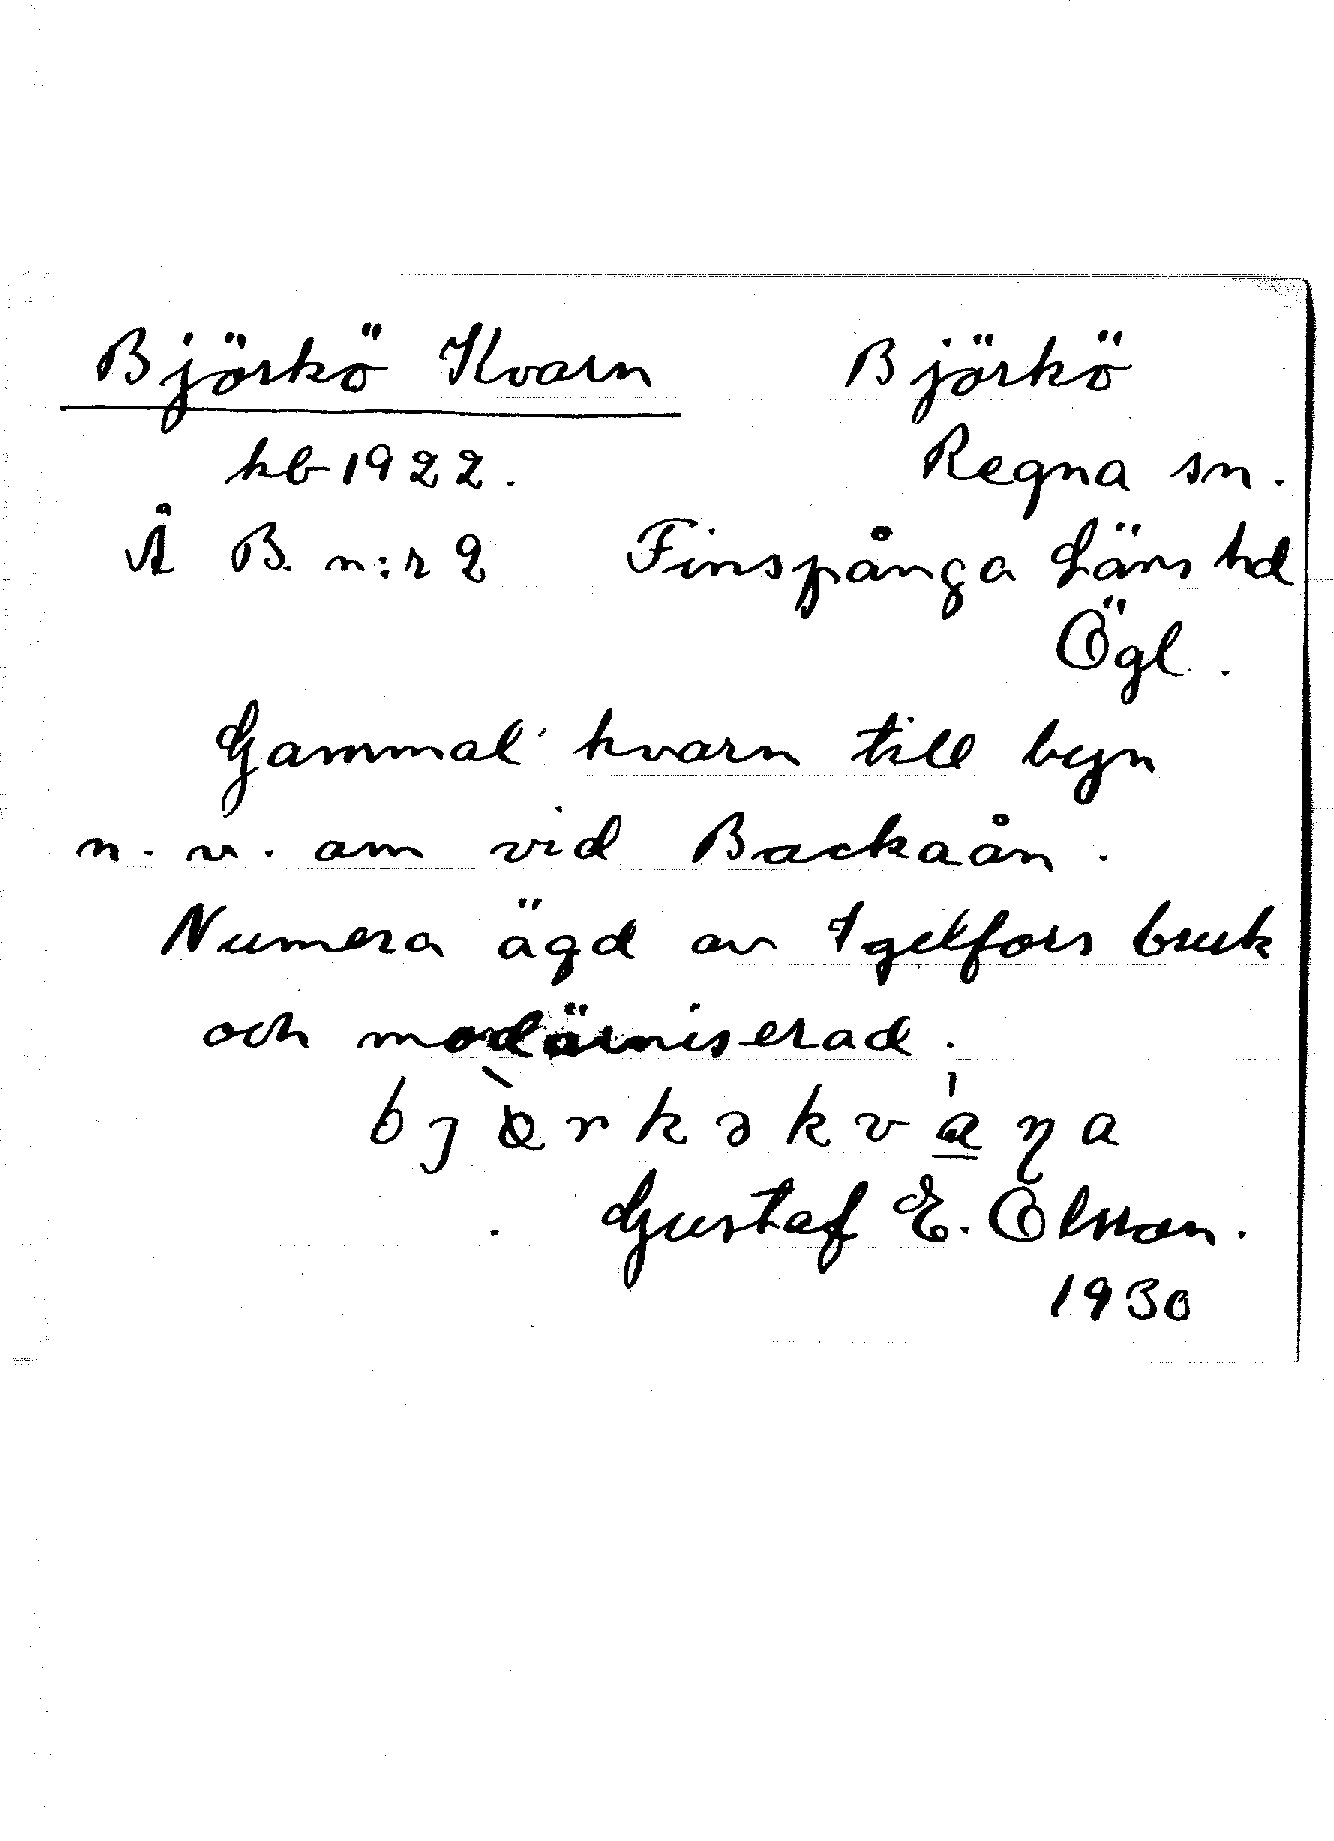 Björkö Kvarn Björkö
hb 1922. Regna sn.
Å B. n:r 2 Finspånga Läns hd
Ögl.
Gammal kvarn till byn
n. v. om vid Backaån.
Numera ägd av Igelfors bruk
och modärniserad.
Gustaf E. Olsson.
1930